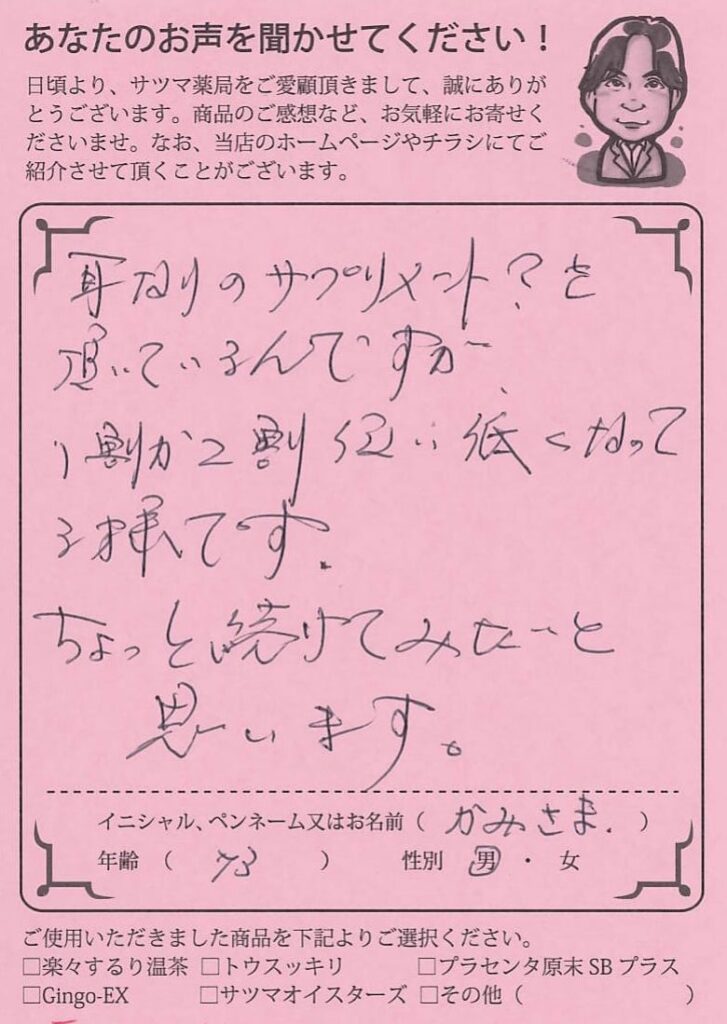 あなたのお声を聞かせてください！
日頃より、サツマ薬局をご愛顧頂きまして、誠にありが
とうございます。商品のご感想など、お気軽にお寄せく
ださいませ。なお、当店のホームページやチラシにてご
紹介させて頂くことがございます。
耳なりのサプリメント？を
頂いているんですが、
1割か2割位い低くなって
る様です.
ちょっと続けてみたいと
思います。
イニシャル、ペンネーム又はお名前（ かみさま. ）
年齢 （ 73 ） 性別 男 ・ 女
ご使用いただきました商品を下記よりご選択ください。
□楽々するり温茶 □トウスッキリ □プラセンタ原末 SB プラス
□Gingo-EX □サツマオイスターズ □その他（ ）